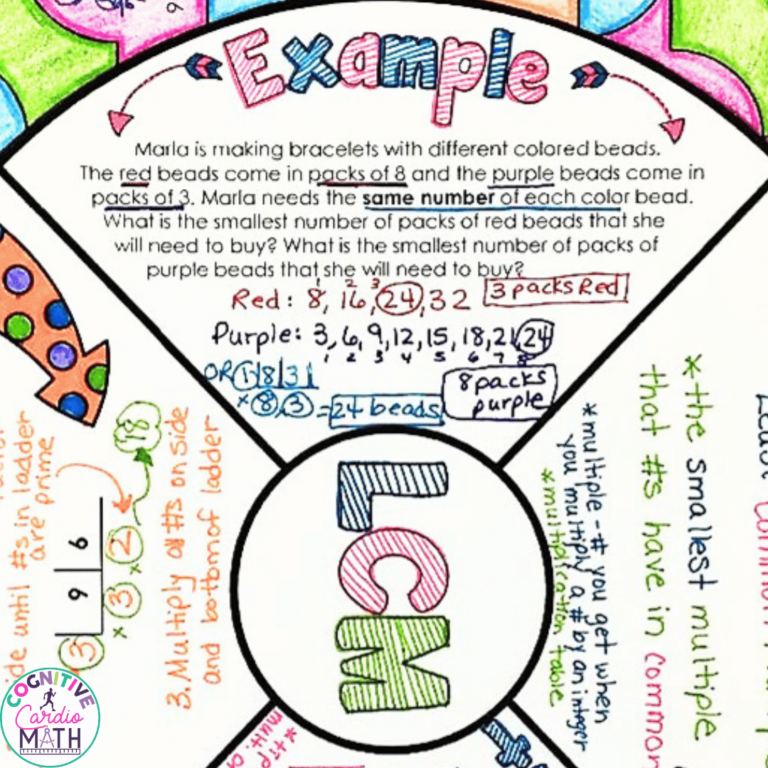 Example
Marla is making bracelets with different colored beads.
The red beads come in packs of 8 and the purple beads come in
packs of 3. Marla needs the same number of each color bead.
What is the smallest number of packs of red beads that she
will need to buy? What is the smallest number of packs of
purple beads that she will need to buy?
1 2 3
Red: 8, 16, 24, 32
3 packs Red
Purple: 3, 6, 9, 12, 15, 18, 21, 24
1 2 3 4 5 6 7 8
OR 1 8 3
× 8 3 = 24 beads
8 packs
purple
LCM
*the smallest multiple
that #s have in common
*multiple - # you get when
you multiply a # by an integer
*multiplication table
until #s in ladder
are prime
18
3 9 6
× 3 × 2
3. Multiply all #s on side
and bottom of ladder
COGNITIVE
Cardio
MATH